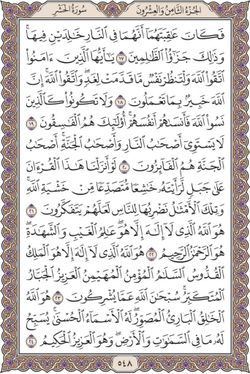 الجزء الثامن والعشرون سورة الحشر
فَكَانَ عَٰقِبَتَهُمَآ أَنَّهُمَا فِى ٱلنَّارِ خَٰلِدَيْنِ فِيهَا
وَذَٰلِكَ جَزَٰٓؤُا۟ ٱلظَّٰلِمِينَ ١٧ يَٰٓأَيُّهَا ٱلَّذِينَ ءَامَنُوا۟
ٱتَّقُوا۟ ٱللَّهَ وَلْتَنظُرْ نَفْسٌ مَّا قَدَّمَتْ لِغَدٍ وَٱتَّقُوا۟ ٱللَّهَ إِنَّ
ٱللَّهَ خَبِيرٌۢ بِمَا تَعْمَلُونَ ١٨ وَلَا تَكُونُوا۟ كَٱلَّذِينَ
نَسُوا۟ ٱللَّهَ فَأَنسَىٰهُمْ أَنفُسَهُمْ أُو۟لَٰٓئِكَ هُمُ ٱلْفَٰسِقُونَ ١٩
لَا يَسْتَوِىٓ أَصْحَٰبُ ٱلنَّارِ وَأَصْحَٰبُ ٱلْجَنَّةِ أَصْحَٰبُ
ٱلْجَنَّةِ هُمُ ٱلْفَآئِزُونَ ٢٠ لَوْ أَنزَلْنَا هَٰذَا ٱلْقُرْءَانَ
عَلَىٰ جَبَلٍ لَّرَأَيْتَهُۥ خَٰشِعًا مُّتَصَدِّعًا مِّنْ خَشْيَةِ ٱللَّهِ
وَتِلْكَ ٱلْأَمْثَٰلُ نَضْرِبُهَا لِلنَّاسِ لَعَلَّهُمْ يَتَفَكَّرُونَ ٢١
هُوَ ٱللَّهُ ٱلَّذِى لَآ إِلَٰهَ إِلَّا هُوَ عَٰلِمُ ٱلْغَيْبِ وَٱلشَّهَٰدَةِ
هُوَ ٱلرَّحْمَٰنُ ٱلرَّحِيمُ ٢٢ هُوَ ٱللَّهُ ٱلَّذِى لَآ إِلَٰهَ إِلَّا هُوَ ٱلْمَلِكُ
ٱلْقُدُّوسُ ٱلسَّلَٰمُ ٱلْمُؤْمِنُ ٱلْمُهَيْمِنُ ٱلْعَزِيزُ ٱلْجَبَّارُ
ٱلْمُتَكَبِّرُ سُبْحَٰنَ ٱللَّهِ عَمَّا يُشْرِكُونَ ٢٣ هُوَ ٱللَّهُ
ٱلْخَٰلِقُ ٱلْبَارِئُ ٱلْمُصَوِّرُ لَهُ ٱلْأَسْمَآءُ ٱلْحُسْنَىٰ يُسَبِّحُ
لَهُۥ مَا فِى ٱلسَّمَٰوَٰتِ وَٱلْأَرْضِ وَهُوَ ٱلْعَزِيزُ ٱلْحَكِيمُ ٢٤
٥٤٨